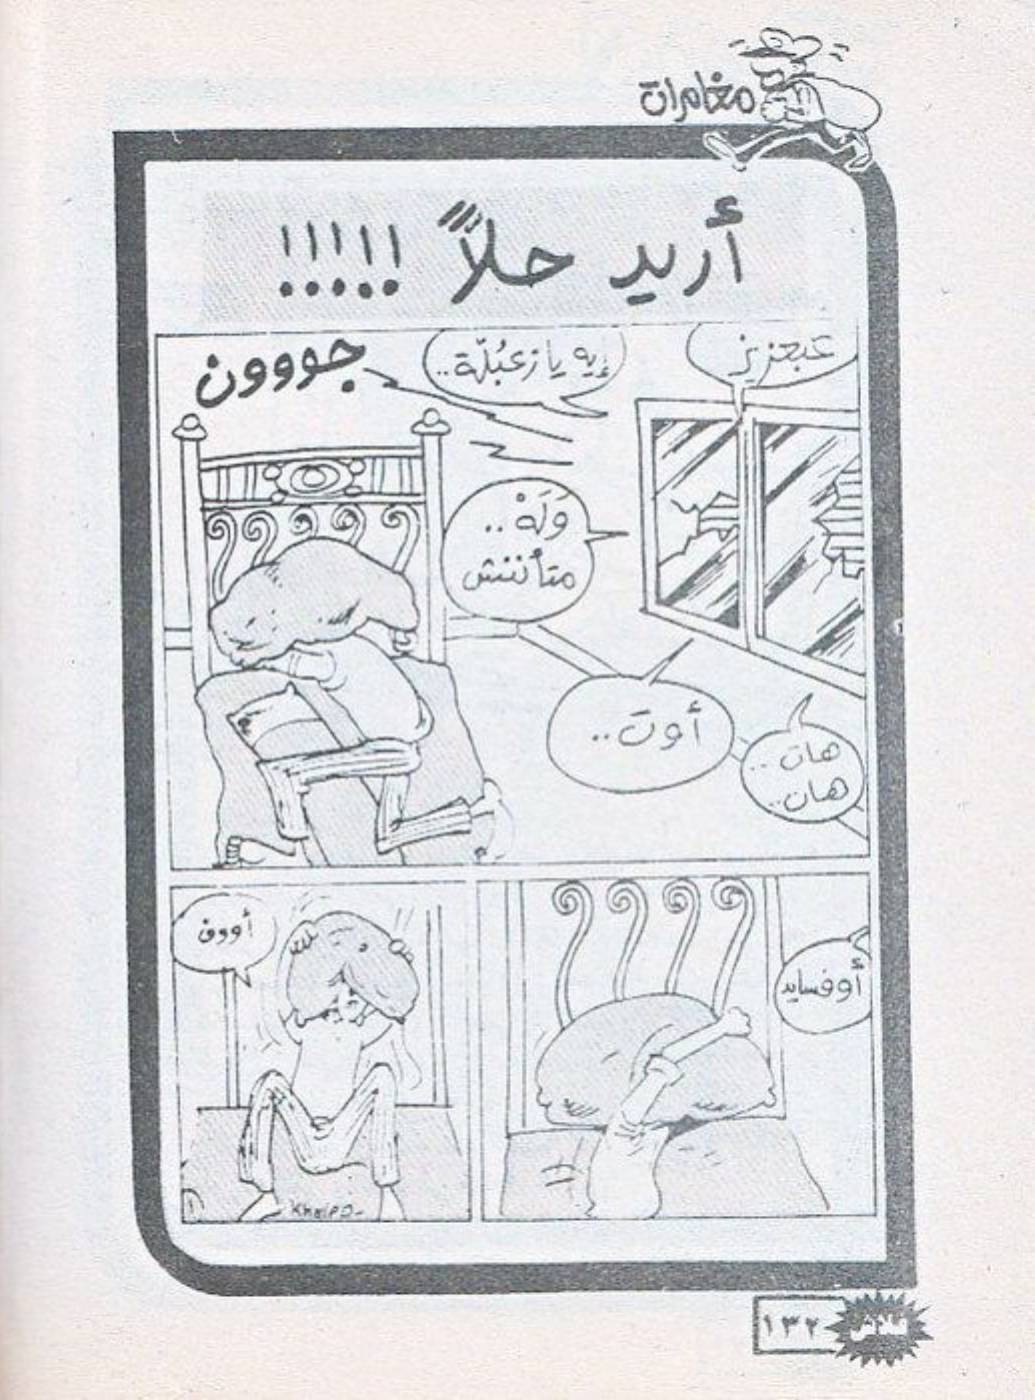 مغامرات
أريد حلاً !!!!!
عبعزيز
إيه يا زعبُلّة..
جوووون
وَلَهْ ..
متأننش
أوت ..
هات ..
هات ..
أوفسايد
أووف
Khaled
فلاش
١٣٢